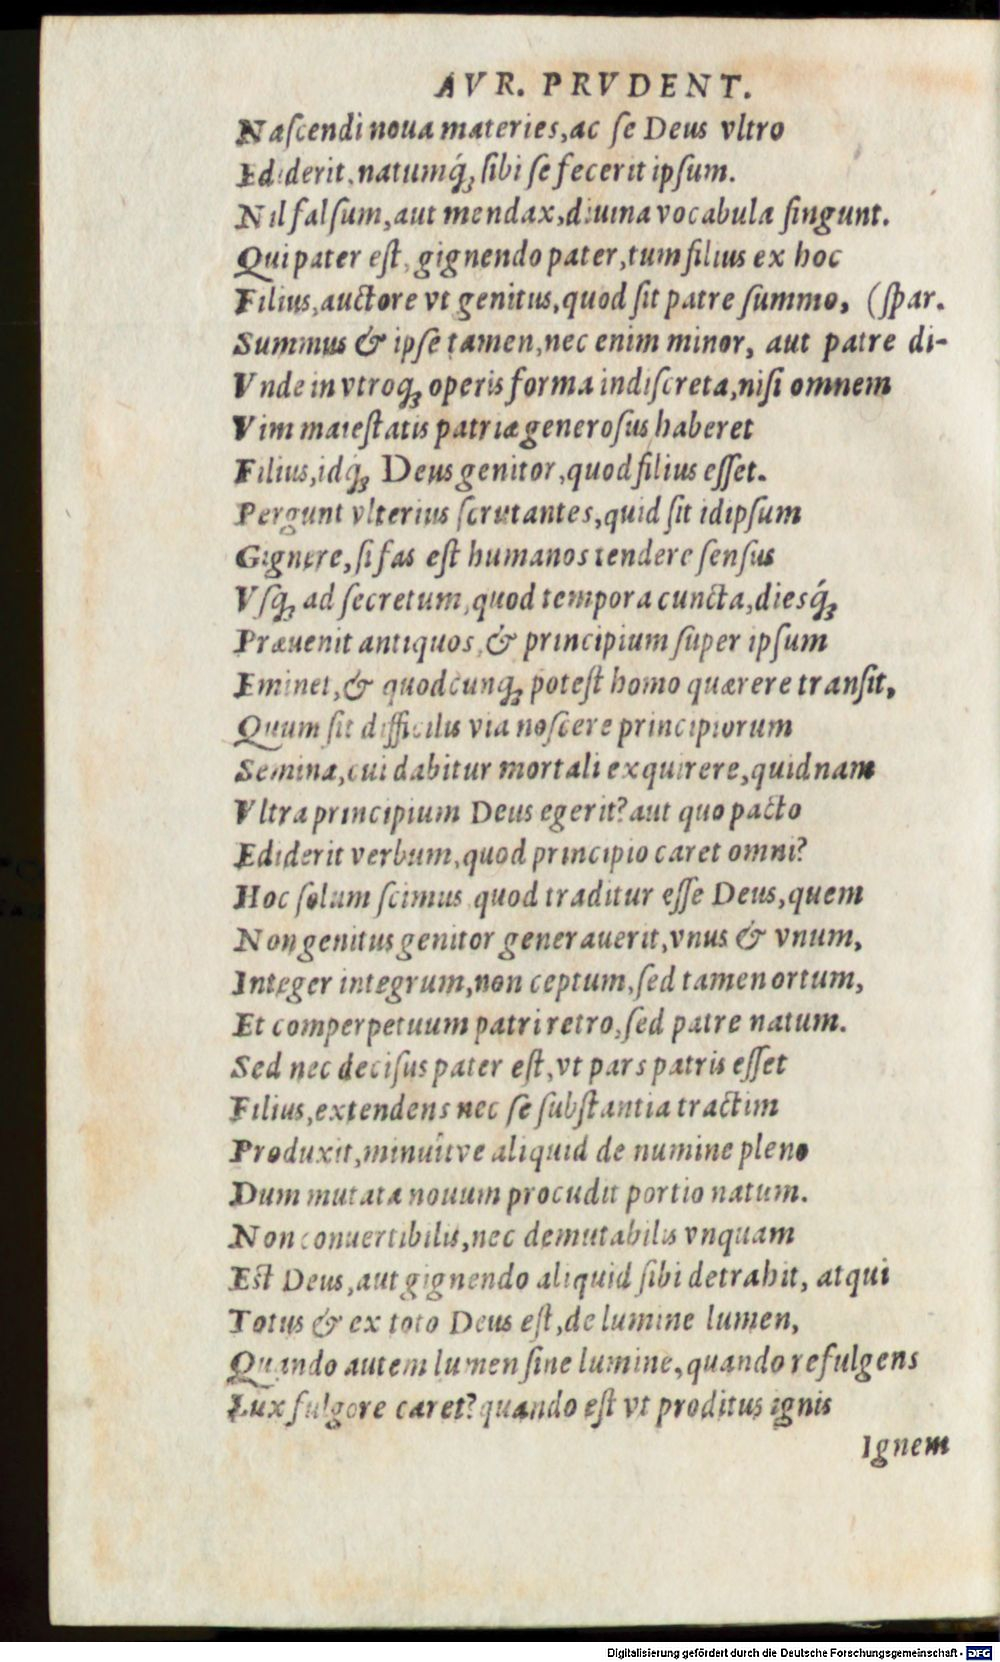 AVR. PRVDENT.
Naſcendi noua materies, ac ſe Deus vltro
Ediderit, natumq́; ſibi ſe fecerit ipſum.
Nil falſum, aut mendax, diuina vocabula fingunt.
Qui pater eſt, gignendo pater, tum filius ex hoc
Filius, auctore vt genitus, quod ſit patre ſummo, (ſpar.
Summus & ipſe tamen, nec enim minor, aut patre di-
Vnde in vtroq; operis forma indiſcreta, niſi omnem
Vim maieſtatis patriæ generoſus haberet
Filius, idq́; Deus genitor, quod filius eſſet.
Pergunt vlterius ſcrutantes, quid ſit idipſum
Gignere, ſi fas eſt humanos tendere ſenſus
Vſq; ad ſecretum, quod tempora cuncta, diesq́;
Præuenit antiquos, & principium ſuper ipſum
Eminet, & quodcunq; poteſt homo quærere tranſit,
Quum ſit difficilis via noſcere principiorum
Semina, cui dabitur mortali exquirere, quidnam
Vltra principium Deus egerit? aut quo pacto
Ediderit verbum, quod principio caret omni?
Hoc ſolum ſcimus quod traditur eſſe Deus, quem
Non genitus genitor generauerit, vnus & vnum,
Integer integrum, non ceptum, ſed tamen ortum,
Et comperpetuum patri retro, ſed patre natum.
Sed nec deciſus pater eſt, vt pars patris eſſet
Filius, extendens nec ſe ſubſtantia tractim
Produxit, minuítve aliquid de numine pleno
Dum mutata nouum procudit portio natum.
Non conuertibilis, nec demutabilis vnquam
Eſt Deus, aut gignendo aliquid ſibi detrahit, atqui
Totus & ex toto Deus eſt, de lumine lumen,
Quando autem lumen ſine lumine, quando refulgens
Lux fulgore caret? quando eſt vt proditus ignis
Ignem
Digitalisierung gefördert durch die Deutsche Forschungsgemeinschaft - DFG